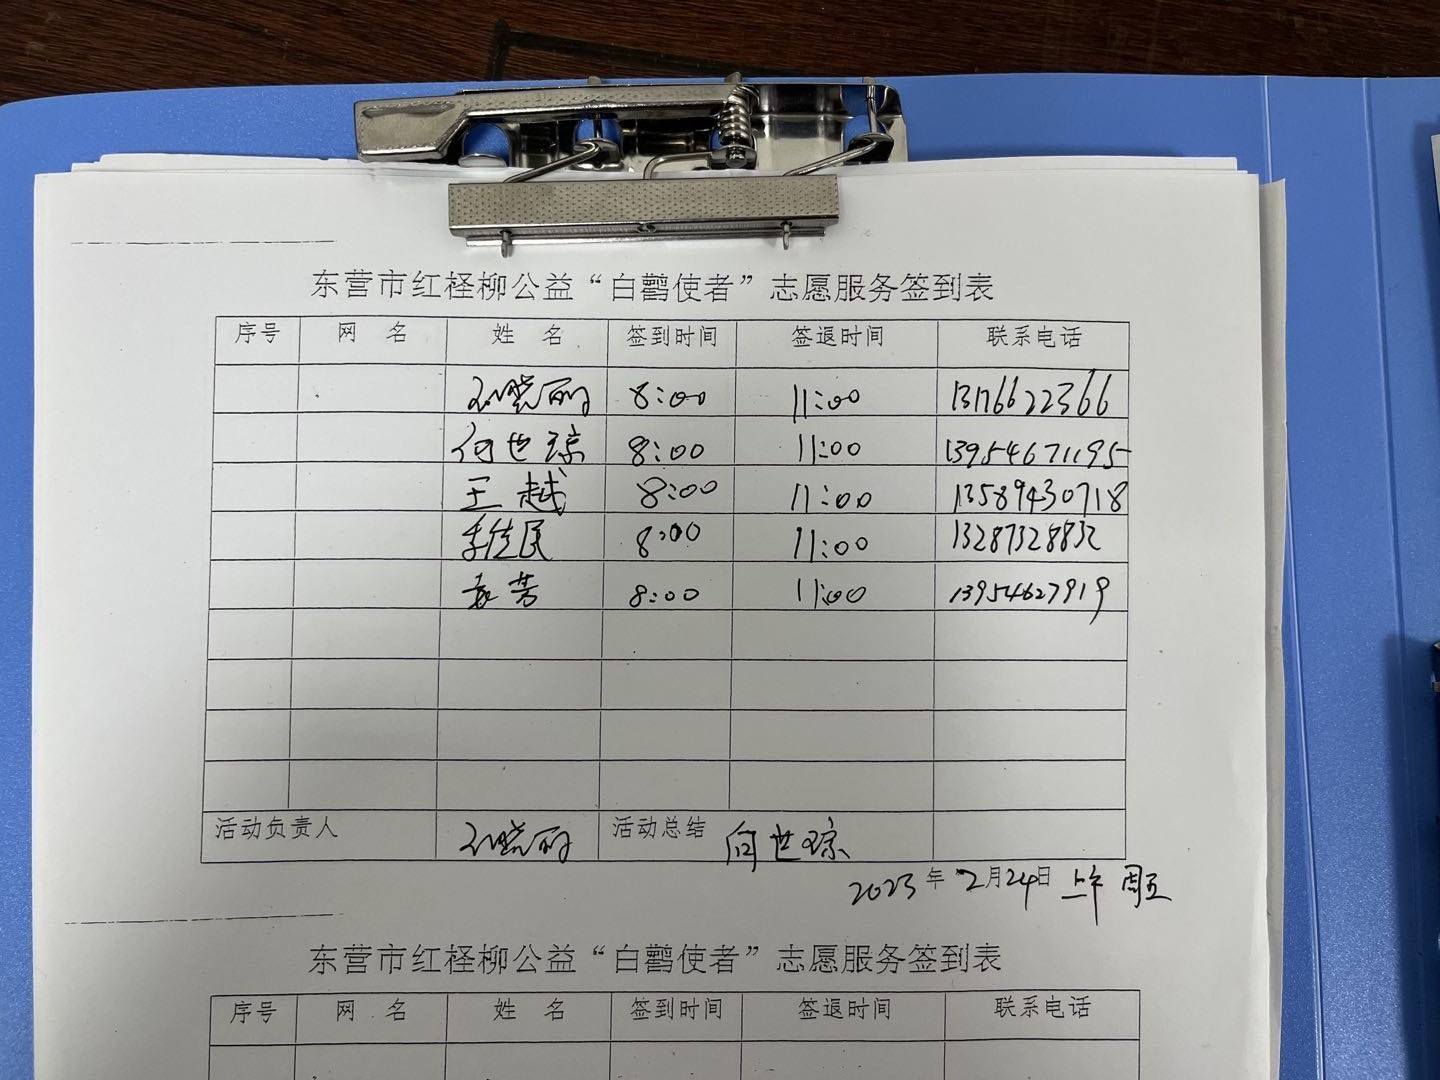 东营市红柽柳公益“白鹳使者”志愿服务签到表
序号 网 名 姓 名 签到时间 签退时间 联系电话
晓丽 8:00 11:00 13176622366
何世琼 8:00 11:00 13954671195
王越 8:00 11:00 13589430718
民 8:00 11:00 13287328832
袁芳 8:00 11:00 13954627919
活动负责人 晓丽 活动总结 何世琼
2023年2月24日 上午 周五
东营市红柽柳公益“白鹳使者”志愿服务签到表
序号 网 名 姓 名 签到时间 签退时间 联系电话